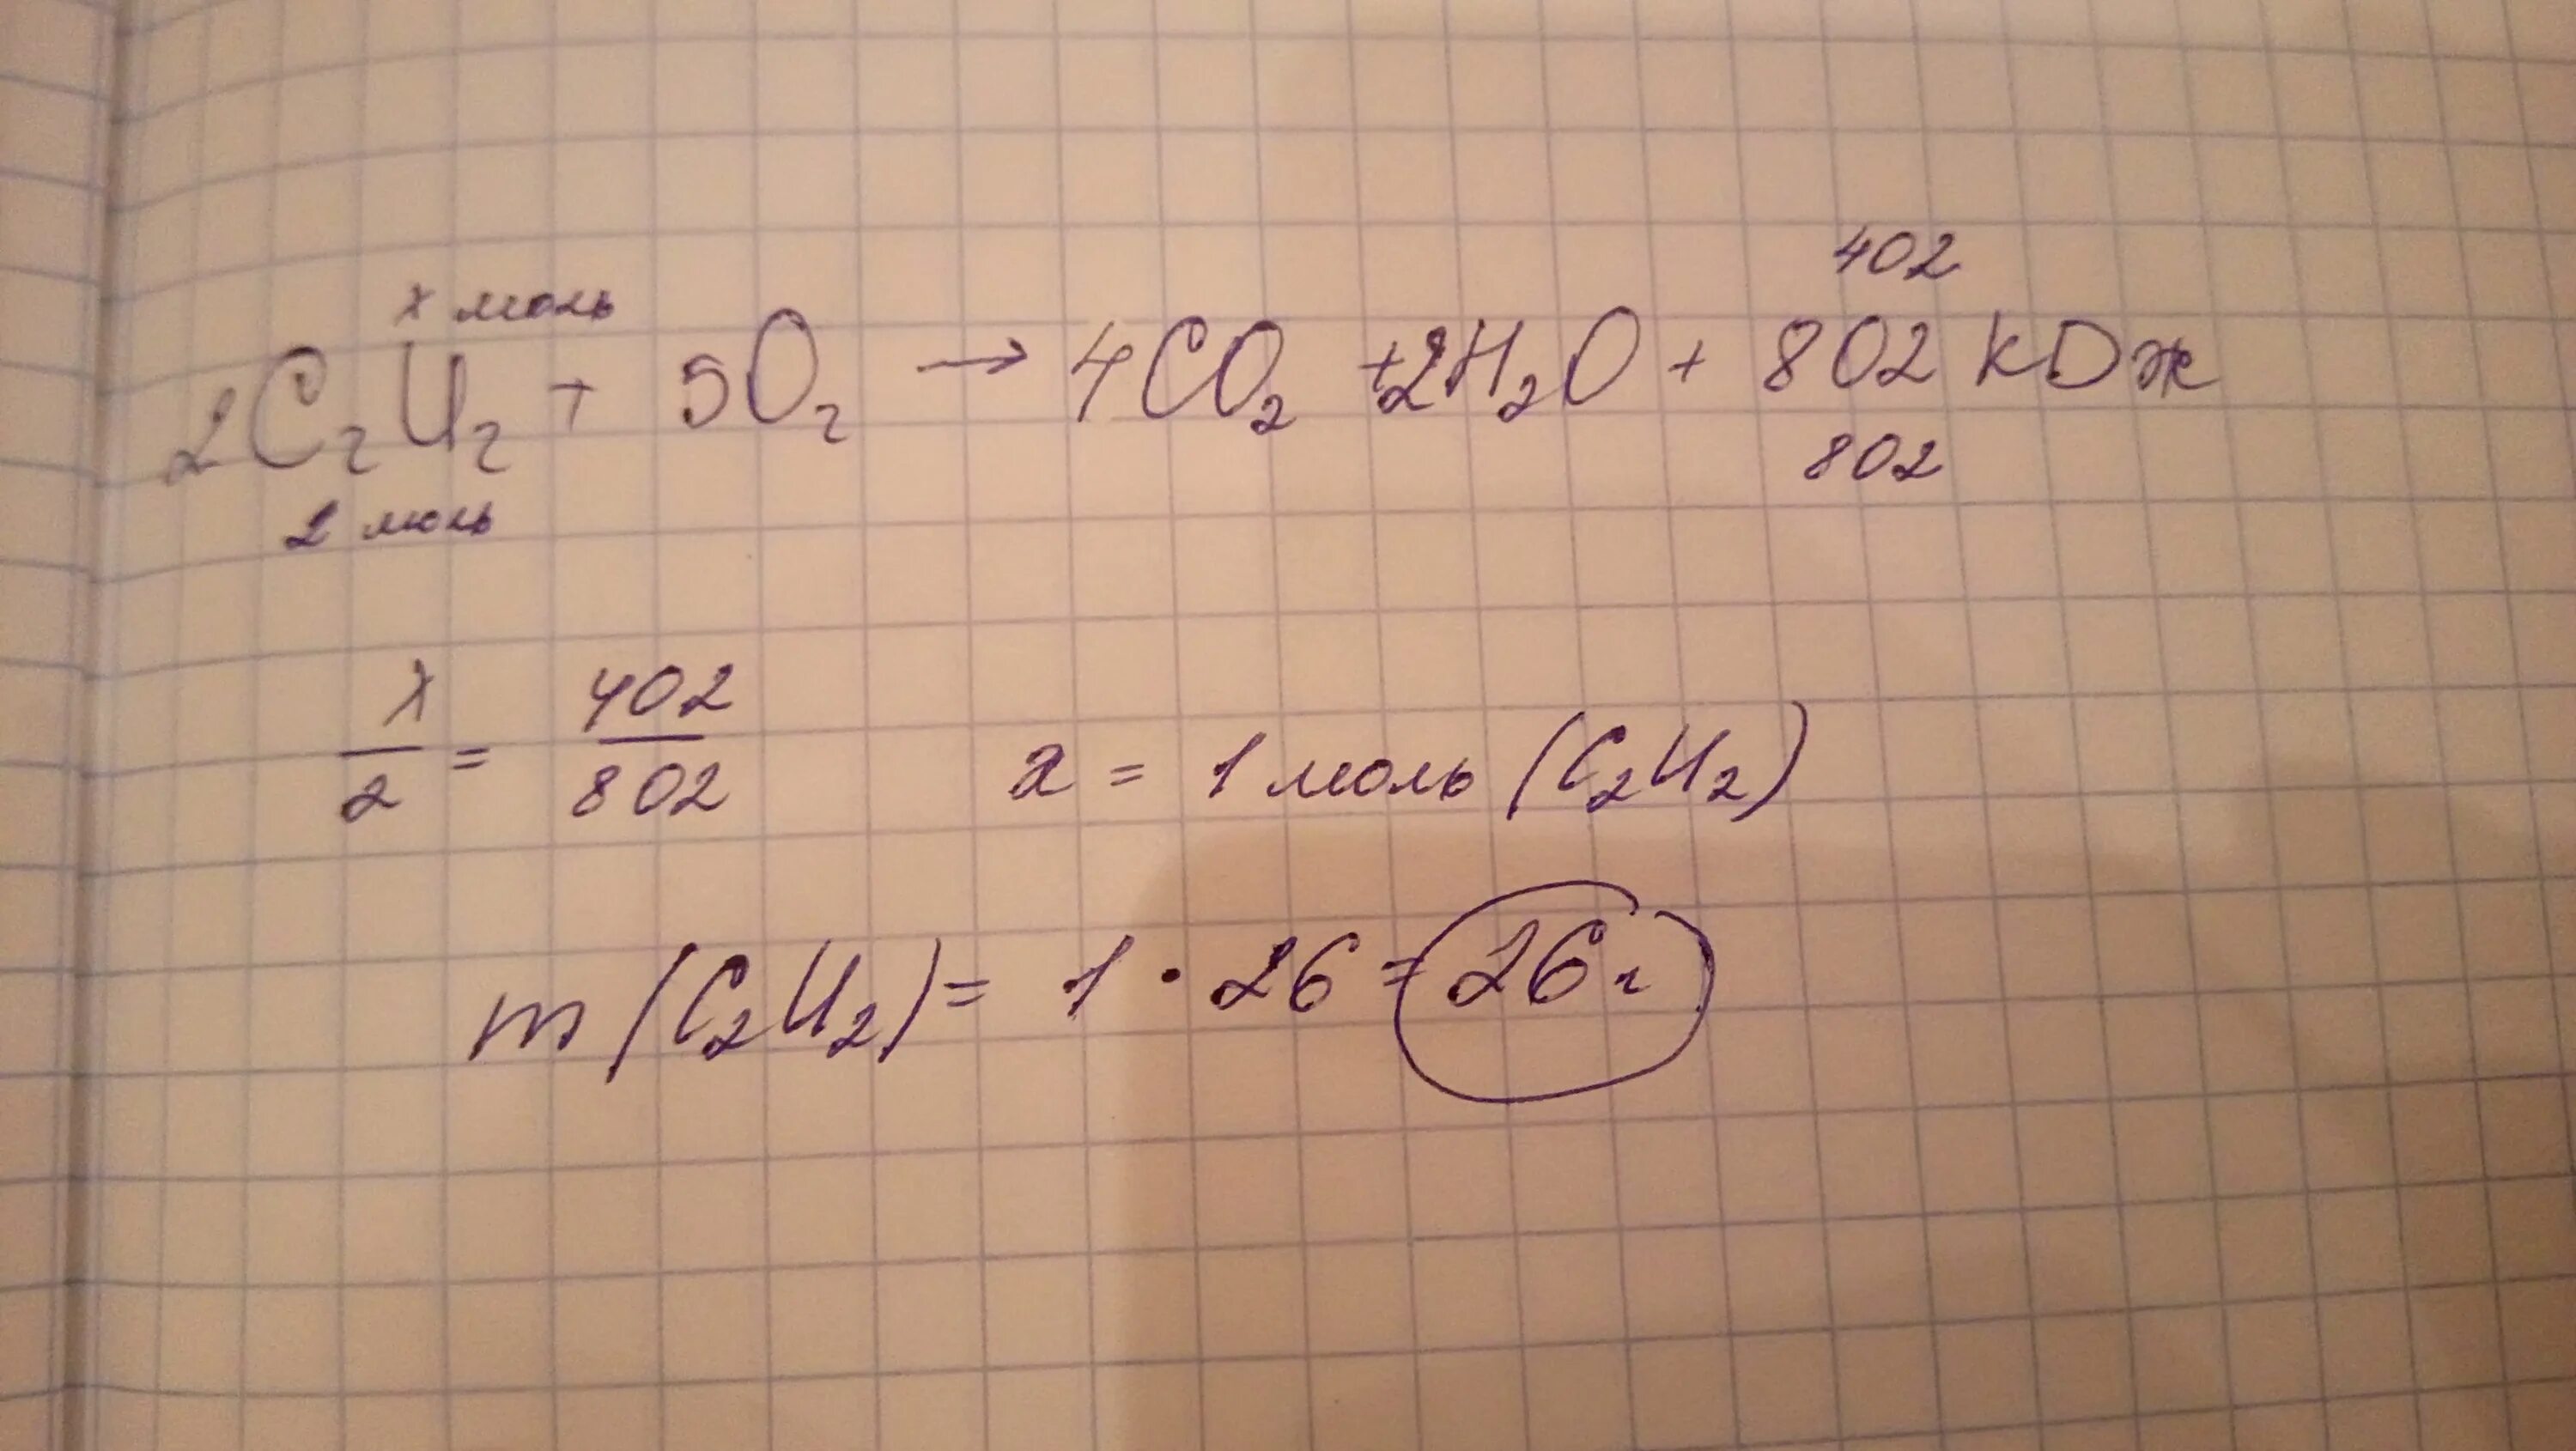 402
х моль
2C₂H₂ + 5O₂ → 4CO₂ + 2H₂O + 802 кДж
2 моль 802
x/2 = 402/802 x = 1 моль (C₂H₂)
m (C₂H₂) = 1 · 26 = 26 г